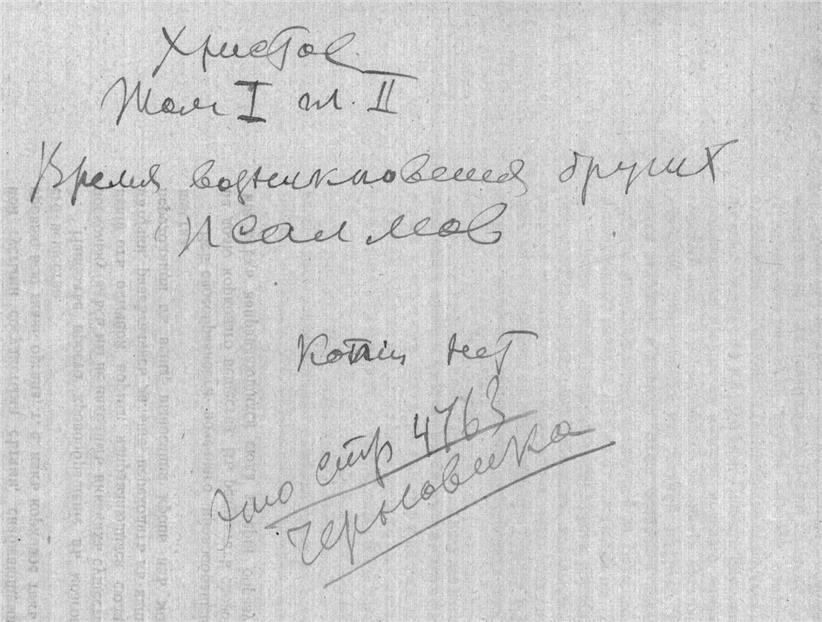 Христос
Том I гл. II
Время возникновения других
псалмов
Копии нет
Это стр 4763
черновика